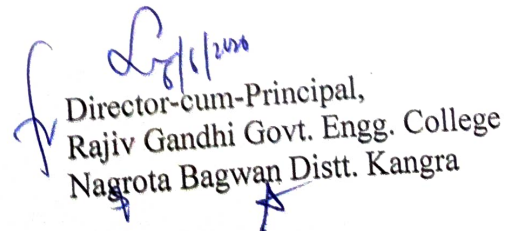 Director-cum-Principal,
Rajiv Gandhi Govt. Engg. College
Nagrota Bagwan Distt. Kangra